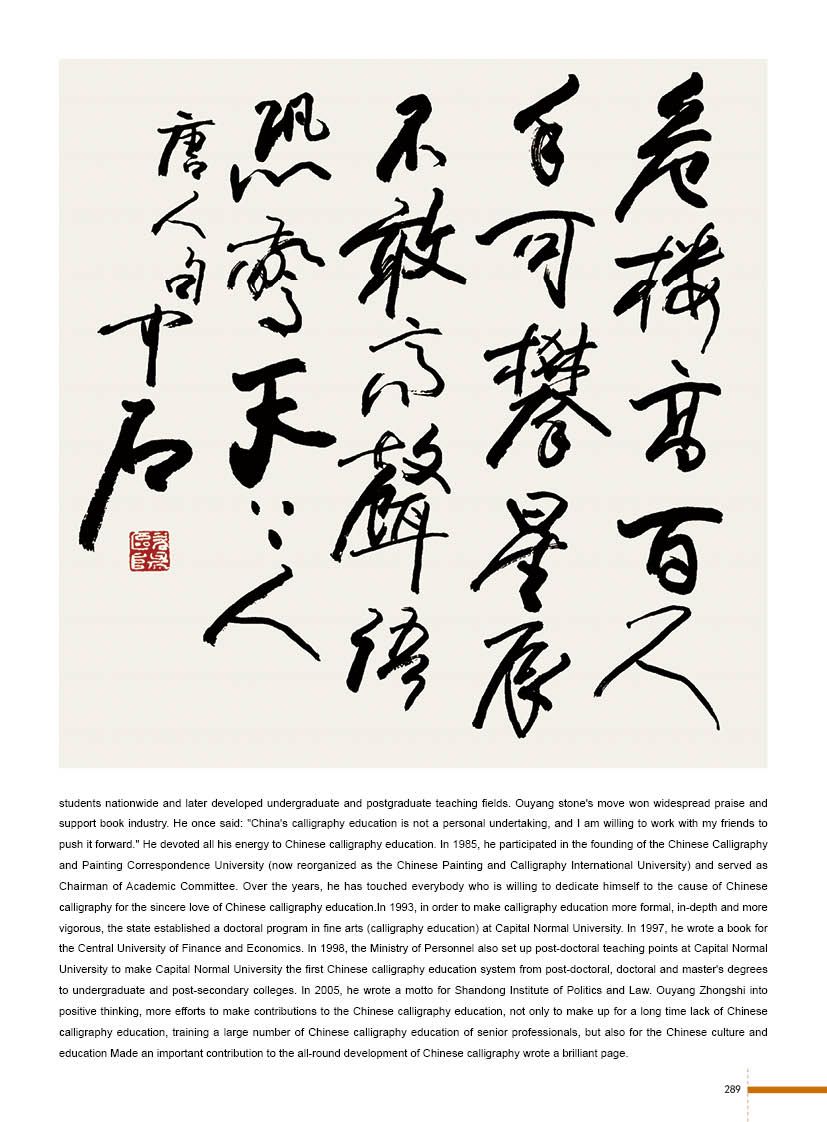 危楼高百尺
手可攀星辰
不敢高聲語
恐驚天上人
唐人句中石
students nationwide and later developed undergraduate and postgraduate teaching fields. Ouyang stone's move won widespread praise and
support book industry. He once said: "China's calligraphy education is not a personal undertaking, and I am willing to work with my friends to
push it forward." He devoted all his energy to Chinese calligraphy education. In 1985, he participated in the founding of the Chinese Calligraphy
and Painting Correspondence University (now reorganized as the Chinese Painting and Calligraphy International University) and served as
Chairman of Academic Committee. Over the years, he has touched everybody who is willing to dedicate himself to the cause of Chinese
calligraphy for the sincere love of Chinese calligraphy education.In 1993, in order to make calligraphy education more formal, in-depth and more
vigorous, the state established a doctoral program in fine arts (calligraphy education) at Capital Normal University. In 1997, he wrote a book for
the Central University of Finance and Economics. In 1998, the Ministry of Personnel also set up post-doctoral teaching points at Capital Normal
University to make Capital Normal University the first Chinese calligraphy education system from post-doctoral, doctoral and master's degrees
to undergraduate and post-secondary colleges. In 2005, he wrote a motto for Shandong Institute of Politics and Law. Ouyang Zhongshi into
positive thinking, more efforts to make contributions to the Chinese calligraphy education, not only to make up for a long time lack of Chinese
calligraphy education, training a large number of Chinese calligraphy education of senior professionals, but also for the Chinese culture and
education Made an important contribution to the all-round development of Chinese calligraphy wrote a brilliant page.
289